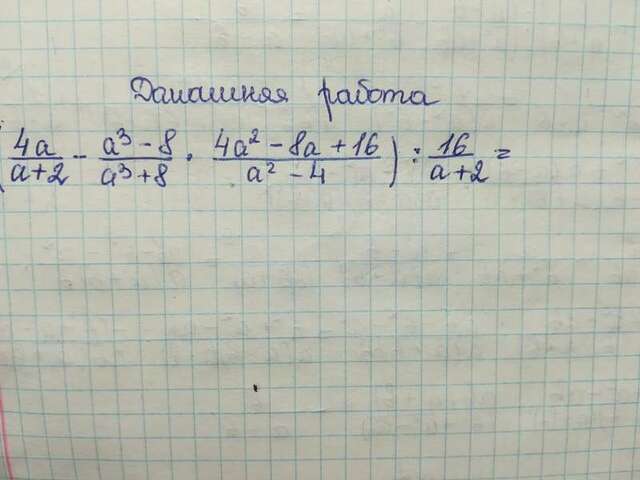 Домашняя работа
(4a/a+2 - a³-8/a³+8 · 4a²-8a+16/a²-4) : 16/a+2 =